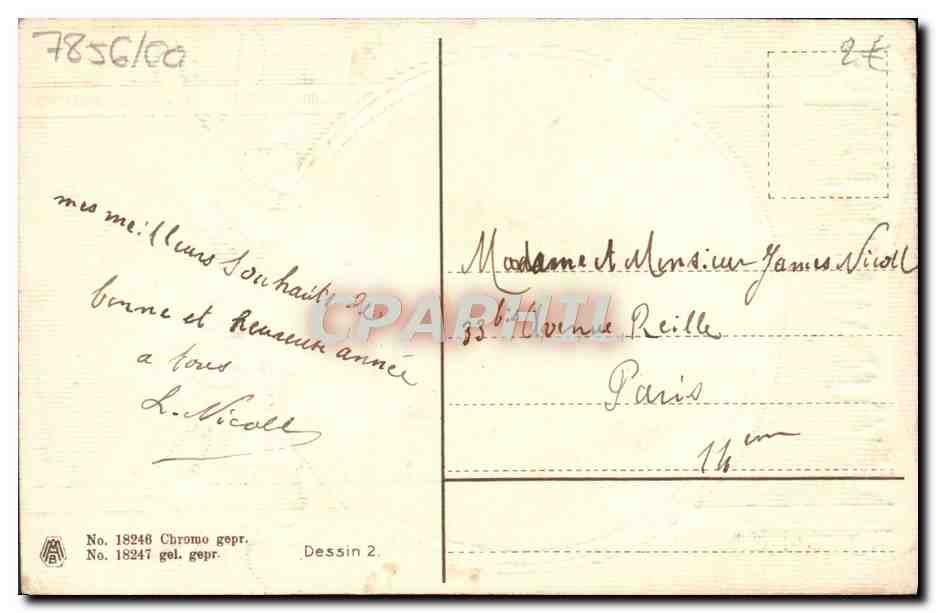 7856/00
2€
mes meilleurs souhaits de
bonne et heureuse année
a tous
L. Nicoll
Madame et Monsieur James Nicoll
33 bis Avenue Reille
Paris
14 em
CPARHIL
No. 18246 Chromo gepr.
No. 18247 gel. gepr.
Dessin 2.